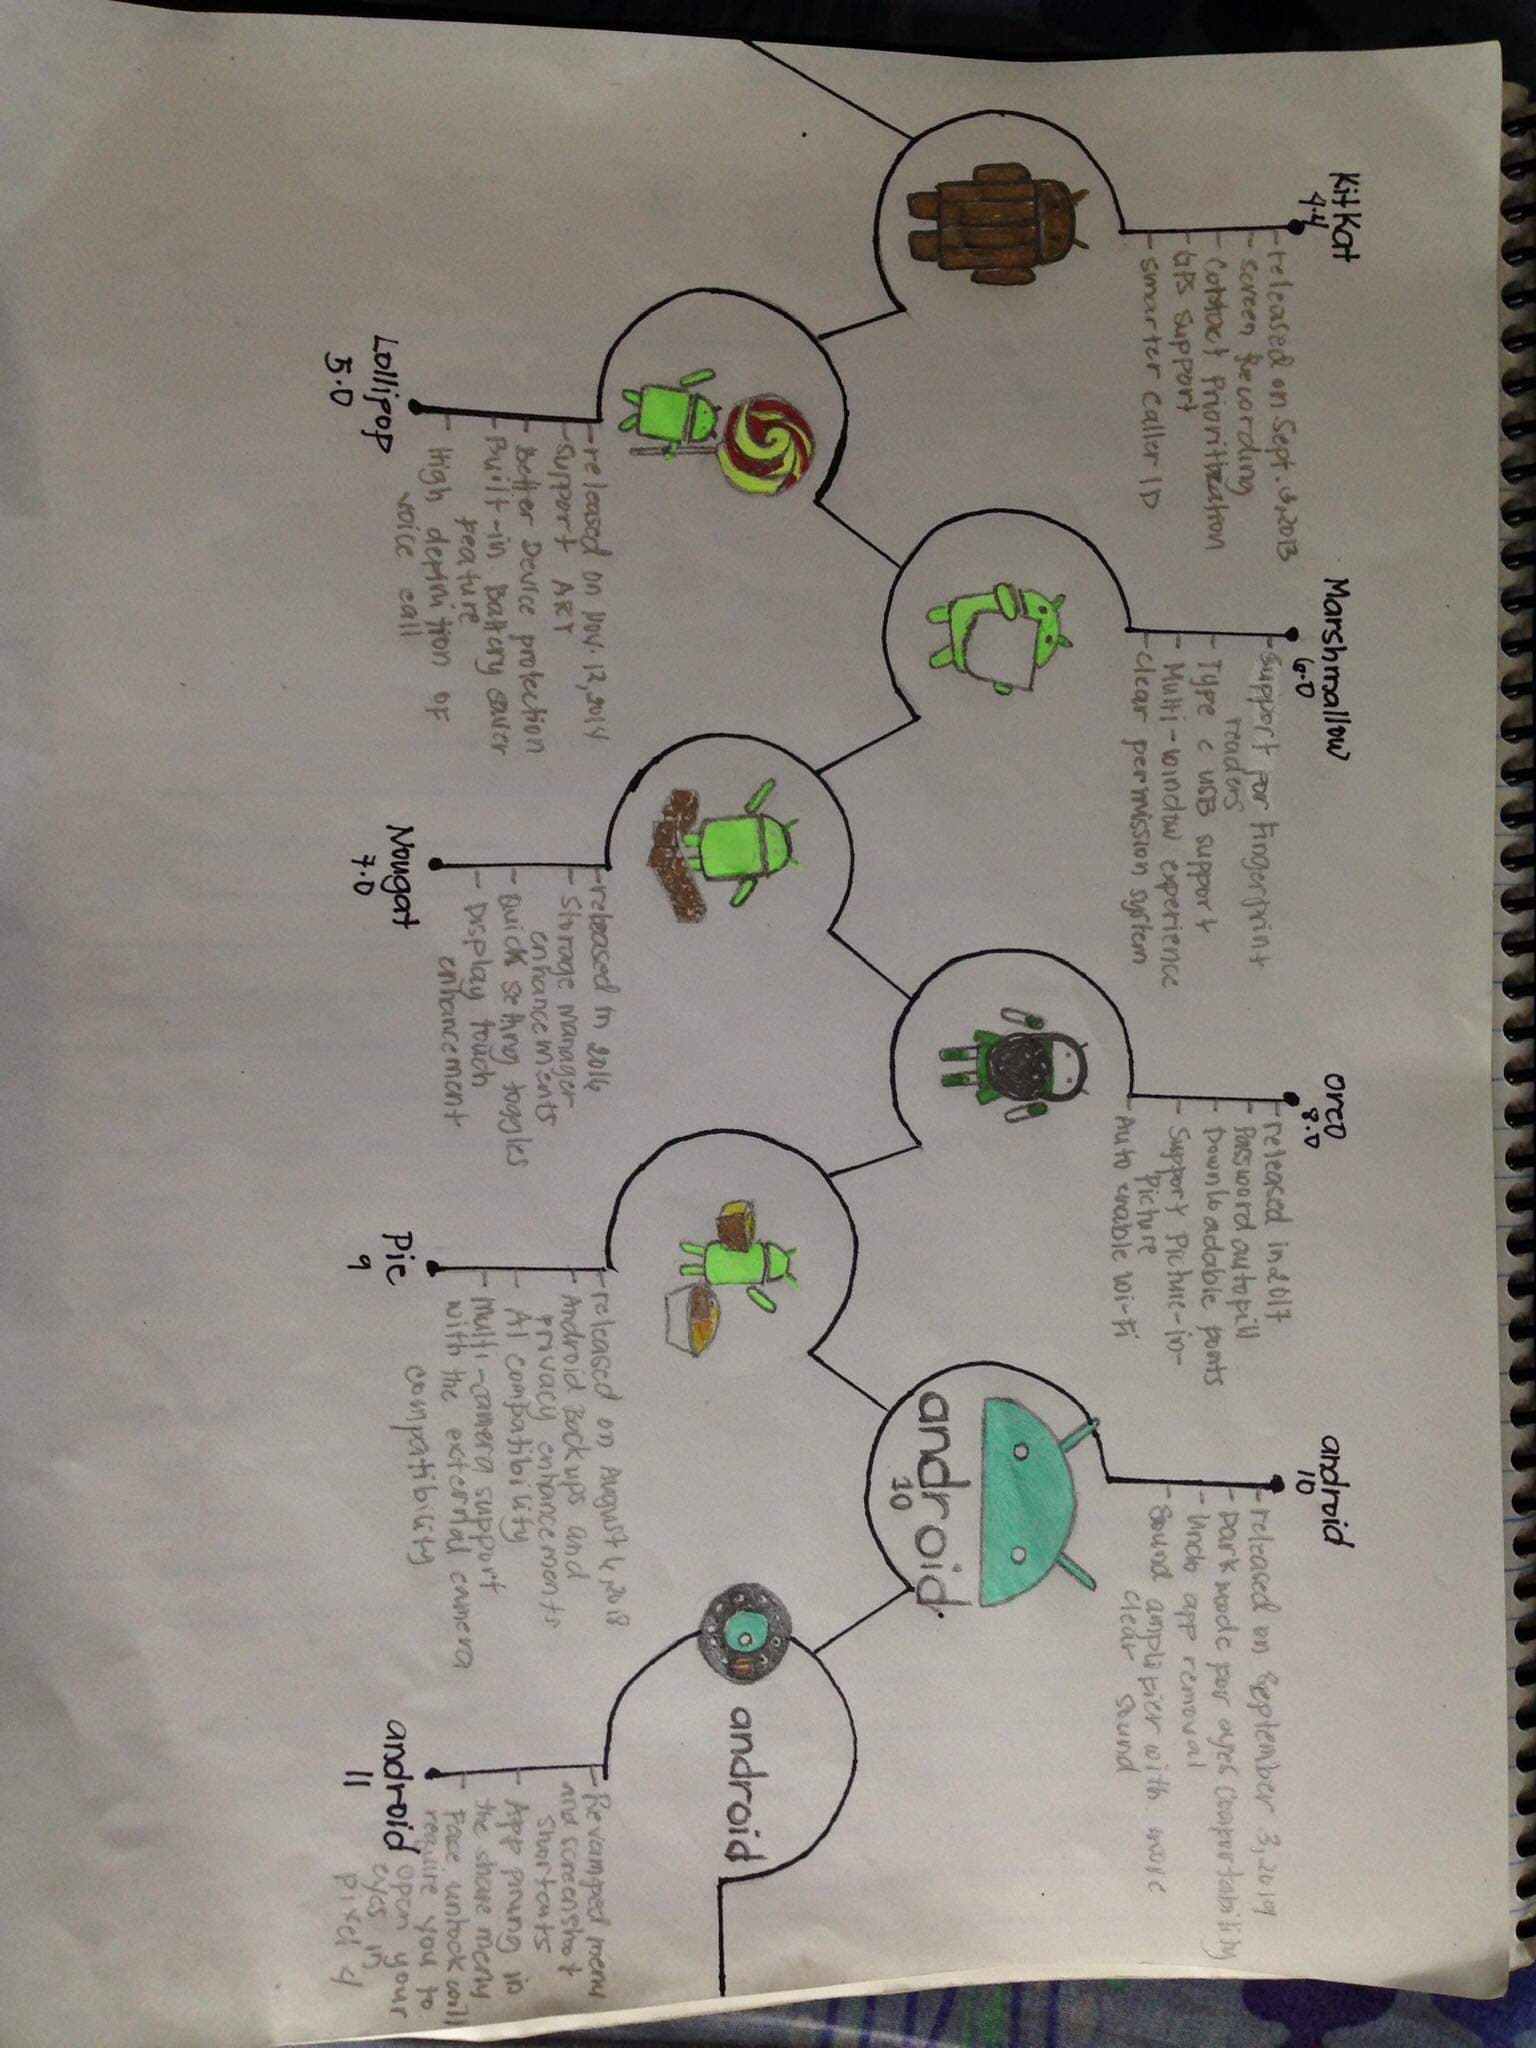 KitKat
4.4
- released on Sept. 3, 2013
- screen Recording
- Contact Prioritization
- GPS support
- smarter caller ID
Lollipop
5.0
- released on Nov. 12, 2014
- Support ART
- Better Device protection
- Built-in Battery saver
feature
- High definition of
voice call
Marshmallow
6.0
- Support for fingerprint
readers
- Type C USB support
- Multi-window experience
- clear permission system
Nougat
7.0
- released in 2016
- Storage manager
enhancements
- Quick setting toggles
- Display touch
enhancement
oreo
8.0
- released in 2017
- Password autofill
- Downloadable fonts
- Support Picture-in-
Picture
- Auto enable Wi-Fi
Pie
9
- released on August 6, 2018
- Android Backups and
privacy enhancements
- AI compatibility
- Multi-camera support
with the external camera
compatibility
android
10
- released on September 3, 2019
- Dark mode for eyes comfortability
- Undo app removal
- Sound amplifier with more
clear sound
android
10
android
11
- Revamped menu
and screenshot
shortcuts
- App pinning in
the share menu
- Face unlock will
require you to
open your
eyes in
pixel 4
android